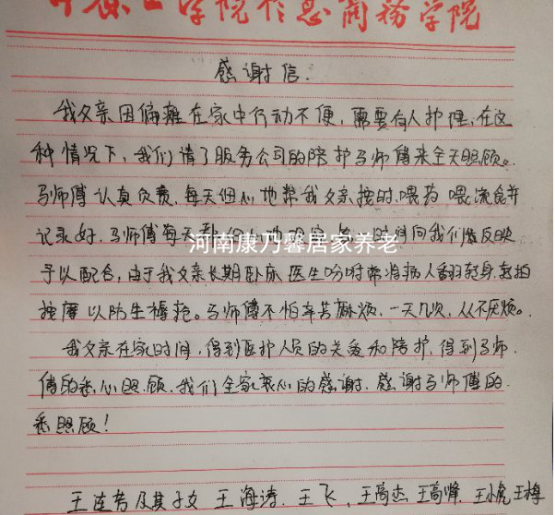 学院信息商務学院
感谢信.
我父亲因偏瘫在家中行动不便,需要有人护理,在这
种情况下,我们请了服务公司的陪护马师傅来全天照顾。
马师傅认真负责,每天细心地帮我父亲按时喂药 喂流食并
记录好.马师傅每天都 时向我们做反映
河南康乃馨居家养老
予以配合,由于我父亲长期卧床 医生吩咐常将病人翻转身 敲拍
按摩 以防生褥疮。马师傅不怕辛苦麻烦,一天几次,从不厌烦。
我父亲在家时间,得到医护人员的关爱和陪护,得到马师
傅的悉心照顾,我们全家衷心的感谢,感谢马师傅的
悉照顾!
王连 及其子女 王海涛、王飞、王高杰、王高峰、王小虎 王